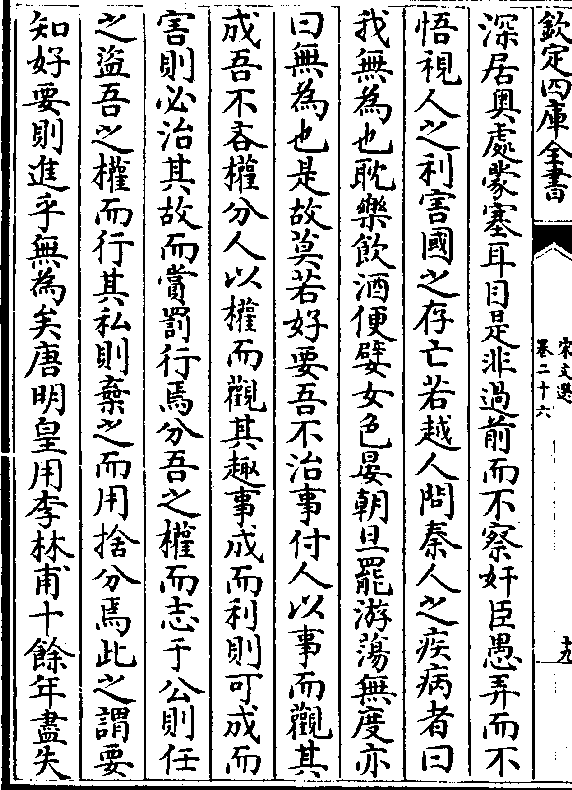 欽定四庫全書
宋文選
卷二十六
十九
深居奥處蒙塞耳目是非過前而不察奸臣愚弄而不
悟視人之利害國之存亡若越人問秦人之疾病者曰
我無為也耽樂飲酒便嬖女色晏朝旦罷游蕩無度亦
曰無為也是故莫若好要吾不治事付人以事而觀其
成吾不吝權分人以權而觀其趣事成而利則可成而
害則必治其故而賞罰行焉分吾之權而志于公則任
之盜吾之權而行其私則棄之而用捨分焉此之謂要
知好要則進乎無為矣唐明皇用李林甫十餘年盡失